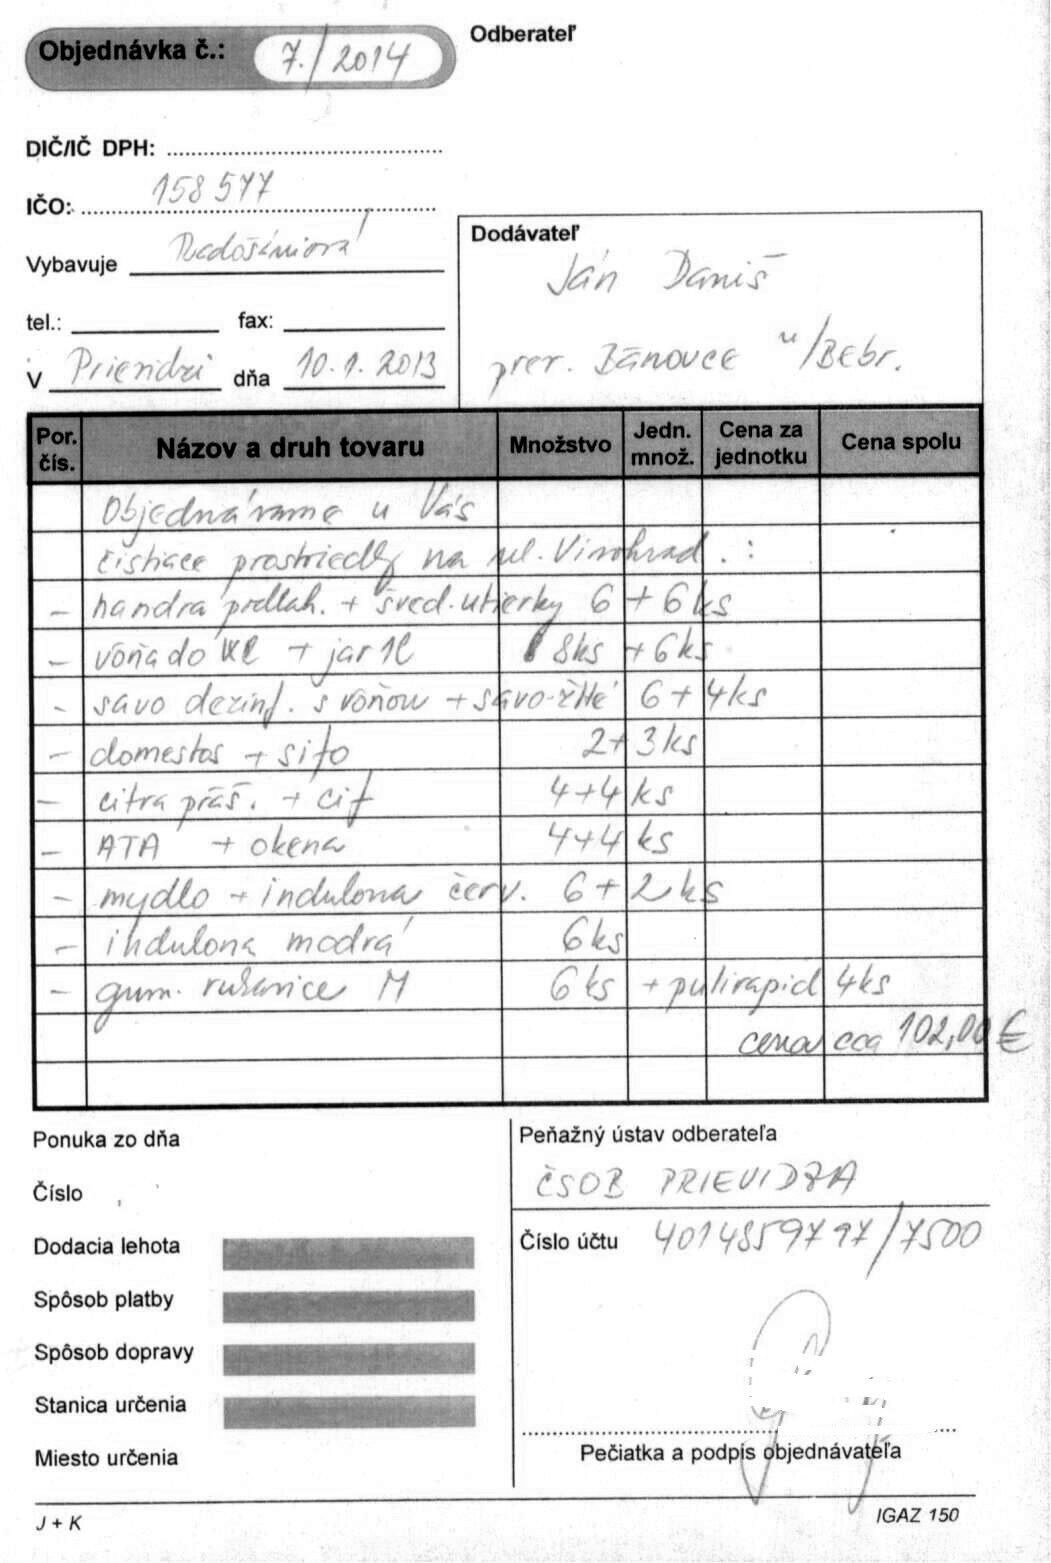 Objednávka č.: 7./2014
Odberateľ
DIČ/IČ DPH:
IČO: 158 577
Vybavuje
tel.: fax:
V Prievidzi dňa 10.1.2013
Dodávateľ
Ján Daniš
prev. Bánovce n/Bebr.
Por. čís. Názov a druh tovaru Množstvo Jedn. množ. Cena za jednotku Cena spolu
Objednávame u Vás
čistiace prostriedky na ul. Vinohrad. :
- handra podlah. + šved. utierky 6 + 6 ks
- vôňa do WC + jar 1l 8ks + 6 ks
- savo dezinf. s vôňou + savo-žlté 6 + 4 ks
- domestos + sifo 2+ 3 ks
- citra práš. + cif 4+4 ks
- ATA + okena 4+4 ks
- mydlo + indulona červ. 6 + 2 ks
- indulona modrá 6 ks
- gum. rukavice M 6 ks + pulirapid 4 ks
cena cca 102,00 €
Ponuka zo dňa
Číslo
Dodacia lehota
Spôsob platby
Spôsob dopravy
Stanica určenia
Miesto určenia
Peňažný ústav odberateľa
ČSOB PRIEVIDZA
Číslo účtu 4014859797/7500
Pečiatka a podpis objednávateľa
J + K
IGAZ 150